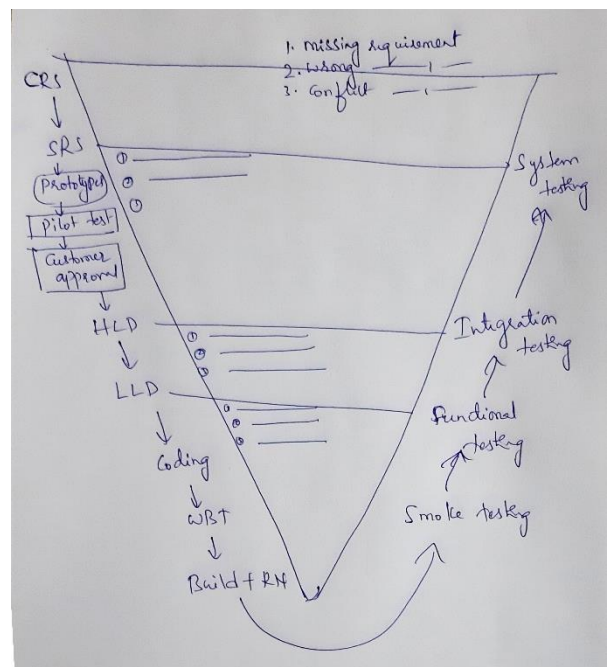 1. missing requirement
2. wrong — 1 —
3. Conflict — 1 —
CRS
SRS
Prototypes
Pilot test
Customer
approval
HLD
LLD
Coding
WBT
Build + RN
①
②
③
①
②
③
①
②
③
System
testing
Integration
testing
Functional
testing
Smoke testing